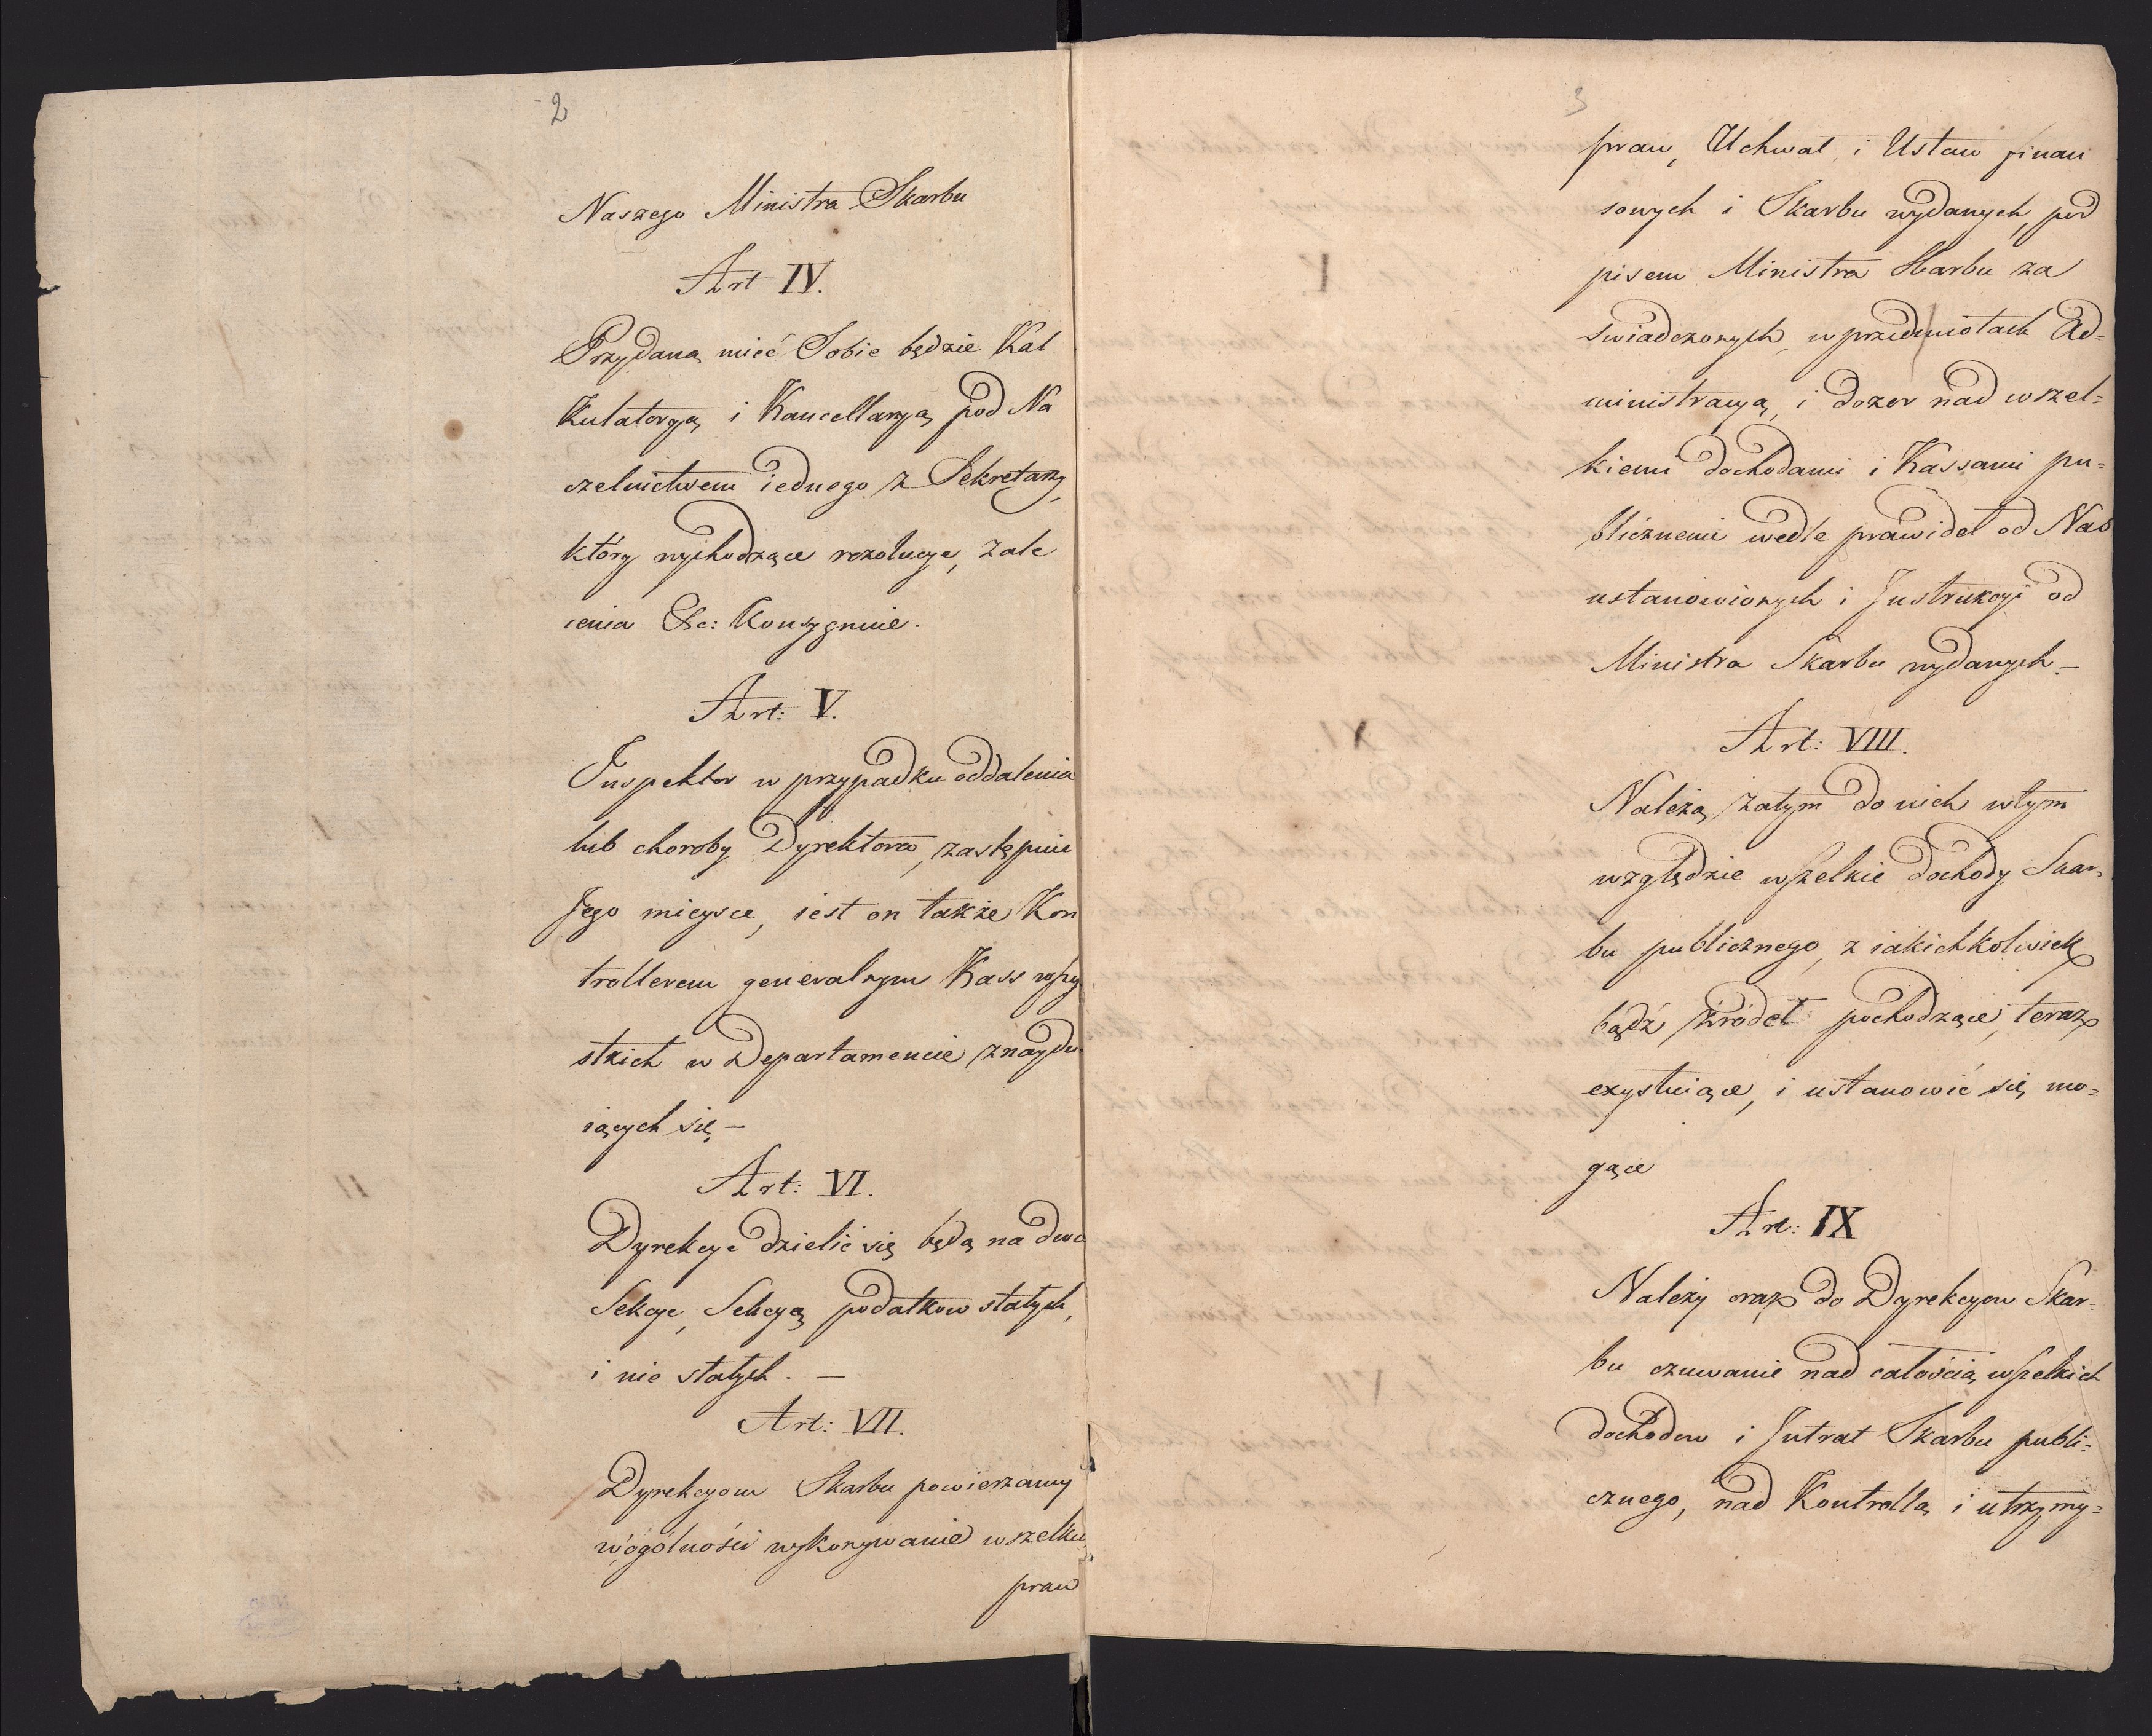 2
Naszego Ministra Skarbu
Art IV.
Przydaną mieć Sobie będzie Kal
kulatoryą i Kancellaryą pod Na
czelnictwem iednego z Sekretarzy,
który wychodzące rezolucye, zale
cenia &c: Konsygnuie.
Art: V.
Inspektor w przypadku oddalenia
lub choroby Dyrektora, zastępuie
Jego mieysce, iest on także Kon
trollerem generalnym Kass wszy
stkich w Departamencie znaydu
iących się –
Art: VI.
Dyrekcye dzielić się będą na dwie
Sekcye, Sekcyą podatkow stałych,
i nie stałych. –
Art: VII.
Dyrekcyom Skarbu powierzamy
wogólności wykonywanie wszelkich
praw
3
praw, Uchwał, i Ustaw finan
sowych i Skarbu wydanych, pod
pisem Ministra Skarbu za
swiadczonych, w przedmiotach Ad=
ministracyą, i dozor nad wszel=
kiemi dochodami i Kassami pu=
blicznemi wedle prawideł od Nas
ustanowionych i Instrukcyi od
Ministra Skarbu wydanych. –
Art: VIII.
Należą zatym do nich w tym
względzie wszelkie dochody Skar=
bu publicznego, z iakichkolwiek
bądź źródeł pochodzące, teraz
exystuiące, i ustanowić się mo=
gące
Art: IX
Należy oraz do Dyrekcyow Skar=
bu czuwanie nad całością wszelkich
dochodow i Intrat Skarbu publi=
cznego, nad Kontrollą i utrzymy=